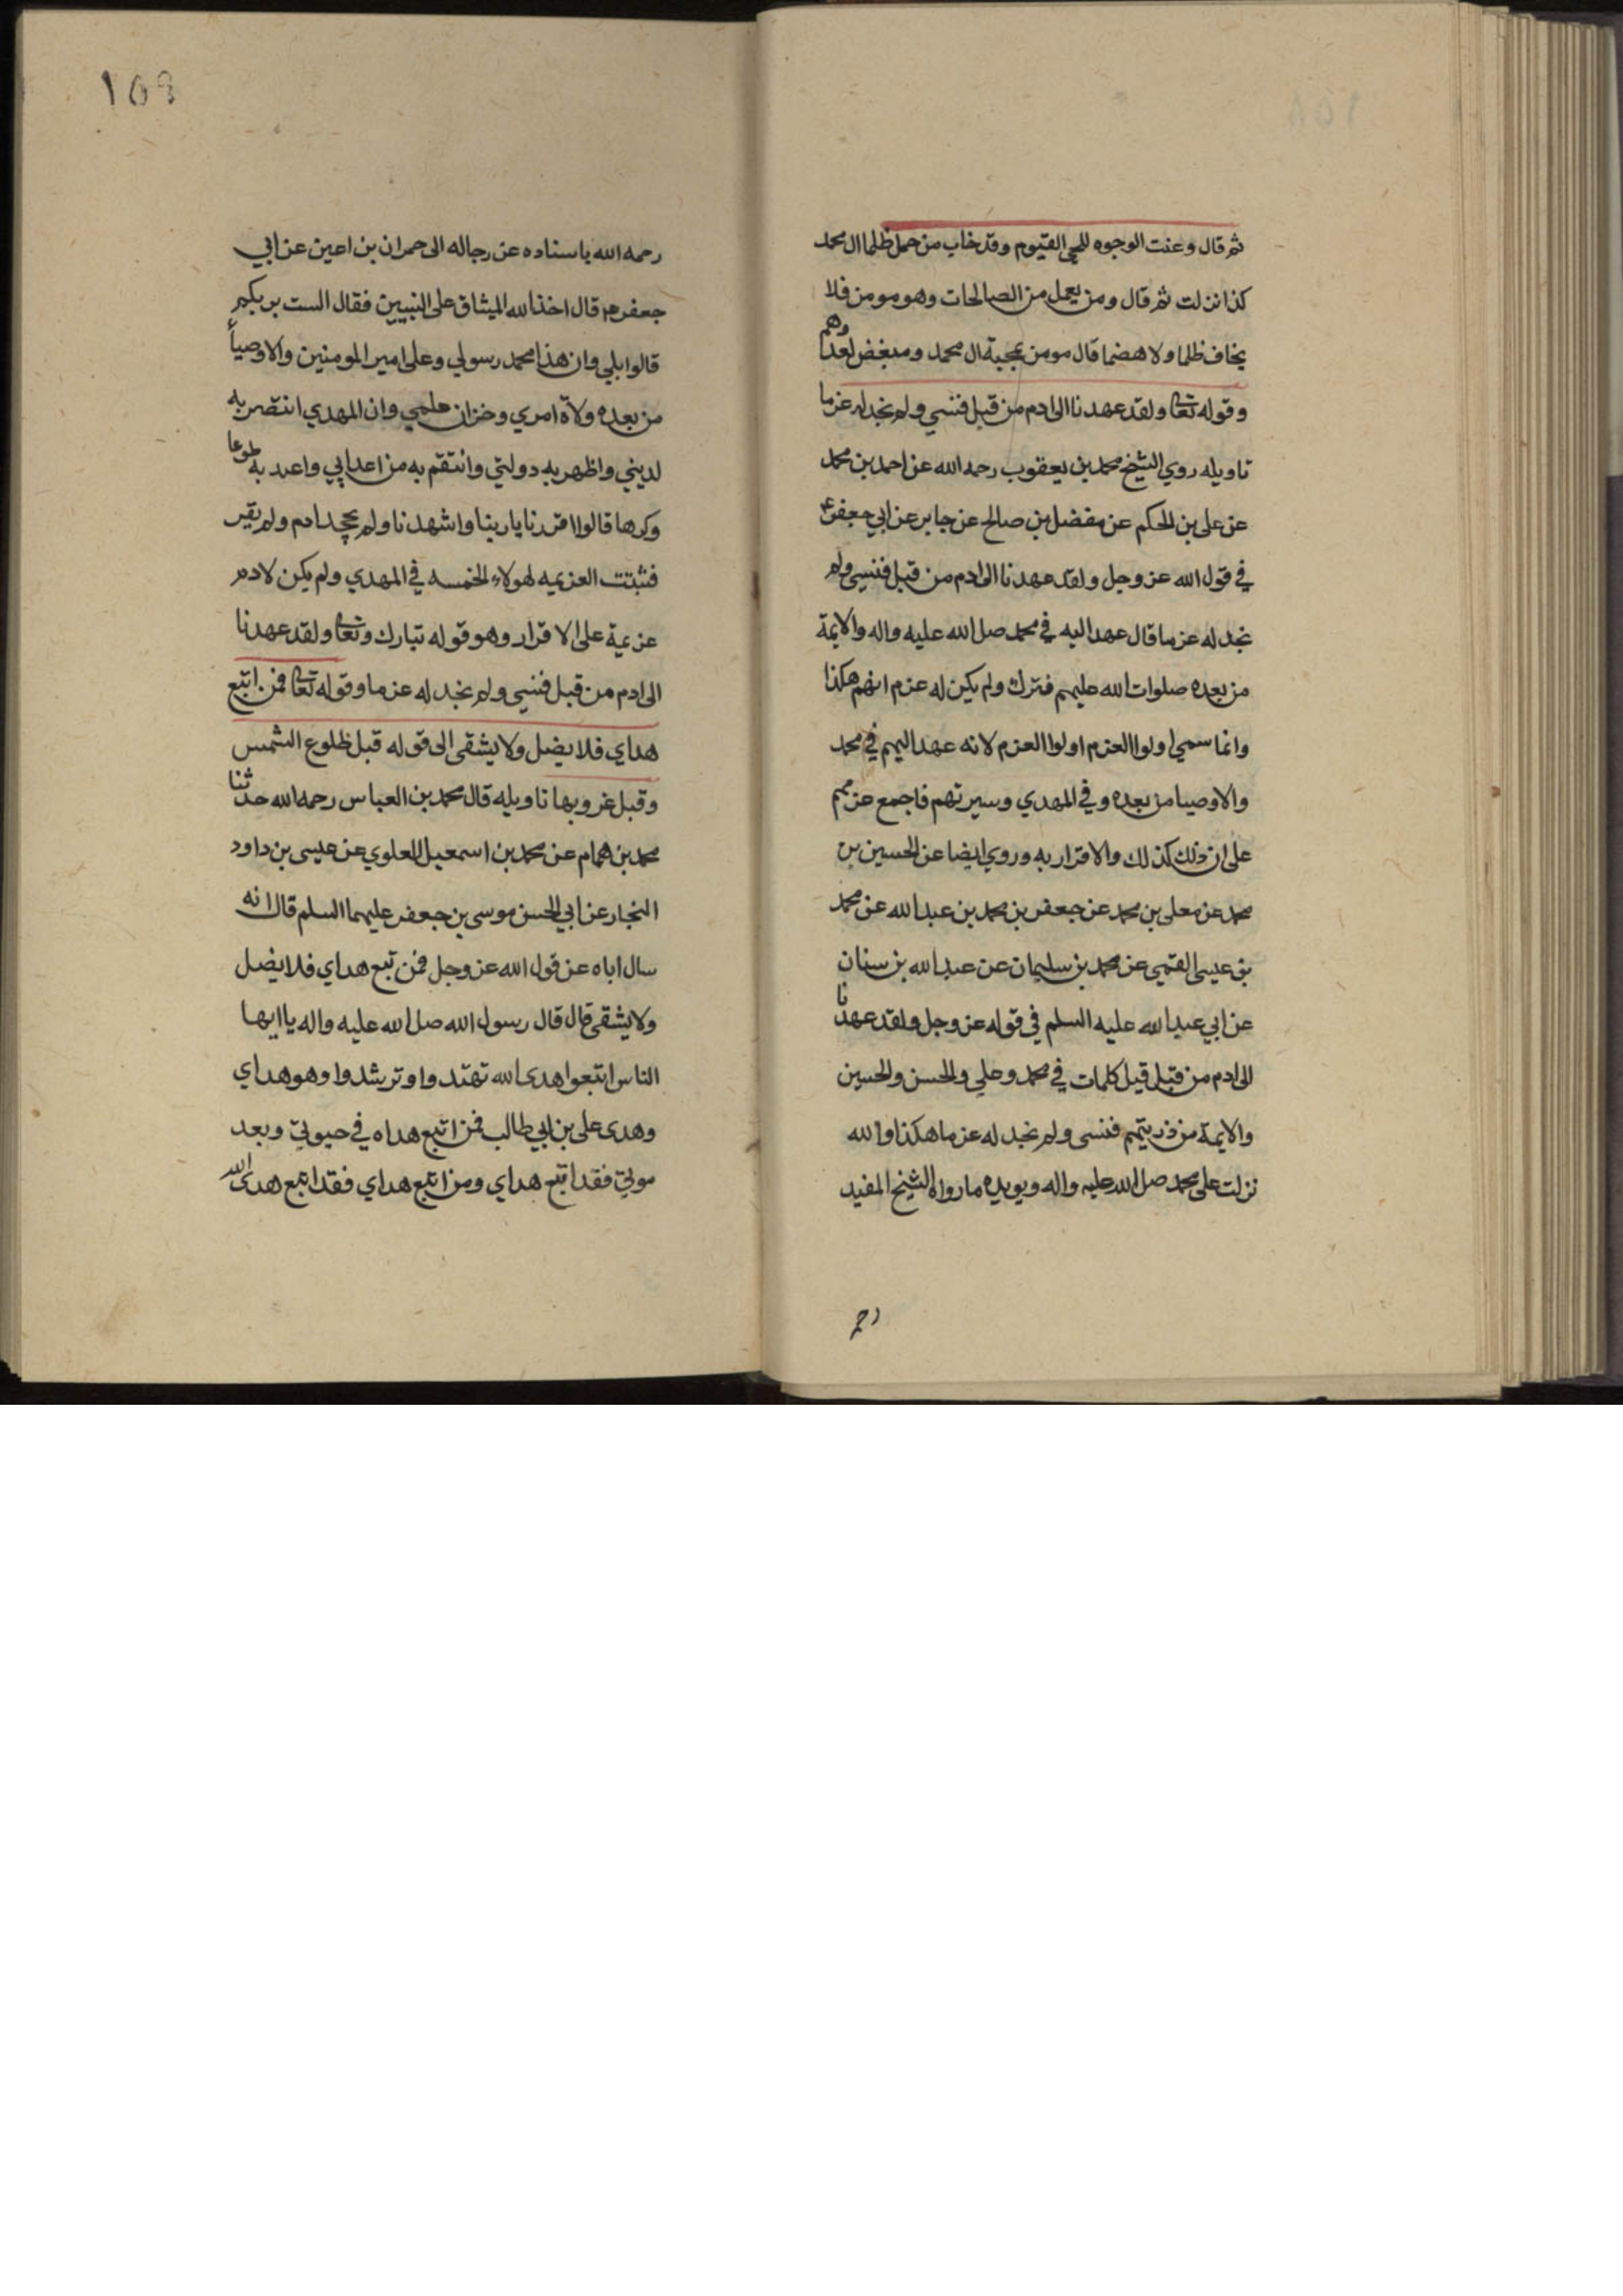 ثم قال وعنت الوجوه للحي القيوم وقد خاب من حمل ظلما ال محمد
كذا نزلت ثم قال ومن يعمل من الصالحات وهو مومن فلا
يخاف ظلما ولا هضما قال مومن بمحبة ال محمد ومبغض لعدوهم
وقوله تعا ولقد عهدنا الى ادم من قبل فنسي ولم نجد له عزما
تاويله روي الشيخ محمد بن يعقوب رحمه الله عن احمد بن محمد
عن على بن الحكم عن مفضل بن صالح عن جابر عن ابي جعفر ع
في قول الله عز وجل ولقد عهدنا الى ادم من قبل فنسي ولم
نجد له عزما قال عهد اليه في محمد صل الله عليه واله والايمة
من بعده صلوات الله عليهم فترك ولم يكن له عزم انهم هكذا
وانما سمي اولوا العزم اولوا العزم لانه عهد اليهم في محمد
والاوصيا من بعده وفي المهدي وسيرتهم فاجمع عزمهم
على ان ذلك كذلك والاقرار به وروي ايضا عن الحسين بن
محمد عن معلى بن محمد عن جعفر بن محمد بن عبد الله عن محمد
بن عيسى القمي عن محمد بن سليمان عن عبد الله بن سنان
عن ابي عبد الله عليه السلم في قوله عز وجل ولقد عهدنا
الى ادم من قبل قيل كلمات في محمد وعلي والحسن والحسين
والايمة من ذريتهم فنسى ولم نجد له عزما هكذا والله
نزلت على محمد صل الله عليه واله ويويده ما رواه الشيخ المفيد
رح
١٥٩
رحمه الله باسناده عن رجاله الى حمران بن اعين عن ابي
جعفر م قال اخذ الله الميثاق على النبيين فقال الست بربكم
قالوا بلى وان هذا محمد رسولي وعلى امير المومنين والاوصيأ
من بعده ولاة امري وخزان علمي وان المهدي انتصر به
لديني واظهر به دولتي وانتقم به من اعدايي واعبد به طوعا
وكرها قالوا اقررنا يا ربنا واشهدنا ولم يجحد ادم ولم يقر
فثبتت العزيمه لهولاء الخمسه في المهدي ولم يكن لادم
عزيمة على الاقرار وهو قوله تبارك وتعا ولقد عهدنا
الى ادم من قبل فنسي ولم نجد له عزما وقوله تعا فمن اتبع
هداي فلا يضل ولا يشقى الى قوله قبل طلوع الشمس
وقبل غروبها تاويله قال محمد بن العباس رحمه الله حدثنا
محمد بن همام عن محمد بن اسمعيل العلوي عن عيسى بن داود
النجار عن ابي الحسن موسى بن جعفر عليهما السلم قال انه
سال اباه عن قول الله عز وجل فمن تبع هداي فلا يضل
ولا يشقى قال قال رسول الله صل الله عليه واله يا ايها
الناس اتبعوا هدى الله تهتدوا وترشدوا وهو هداي
وهدى على بن ابي طالب فمن اتبع هداه في حيوتي وبعد
موتي فقد اتبع هداي ومن اتبع هداي فقد اتبع هدى الله